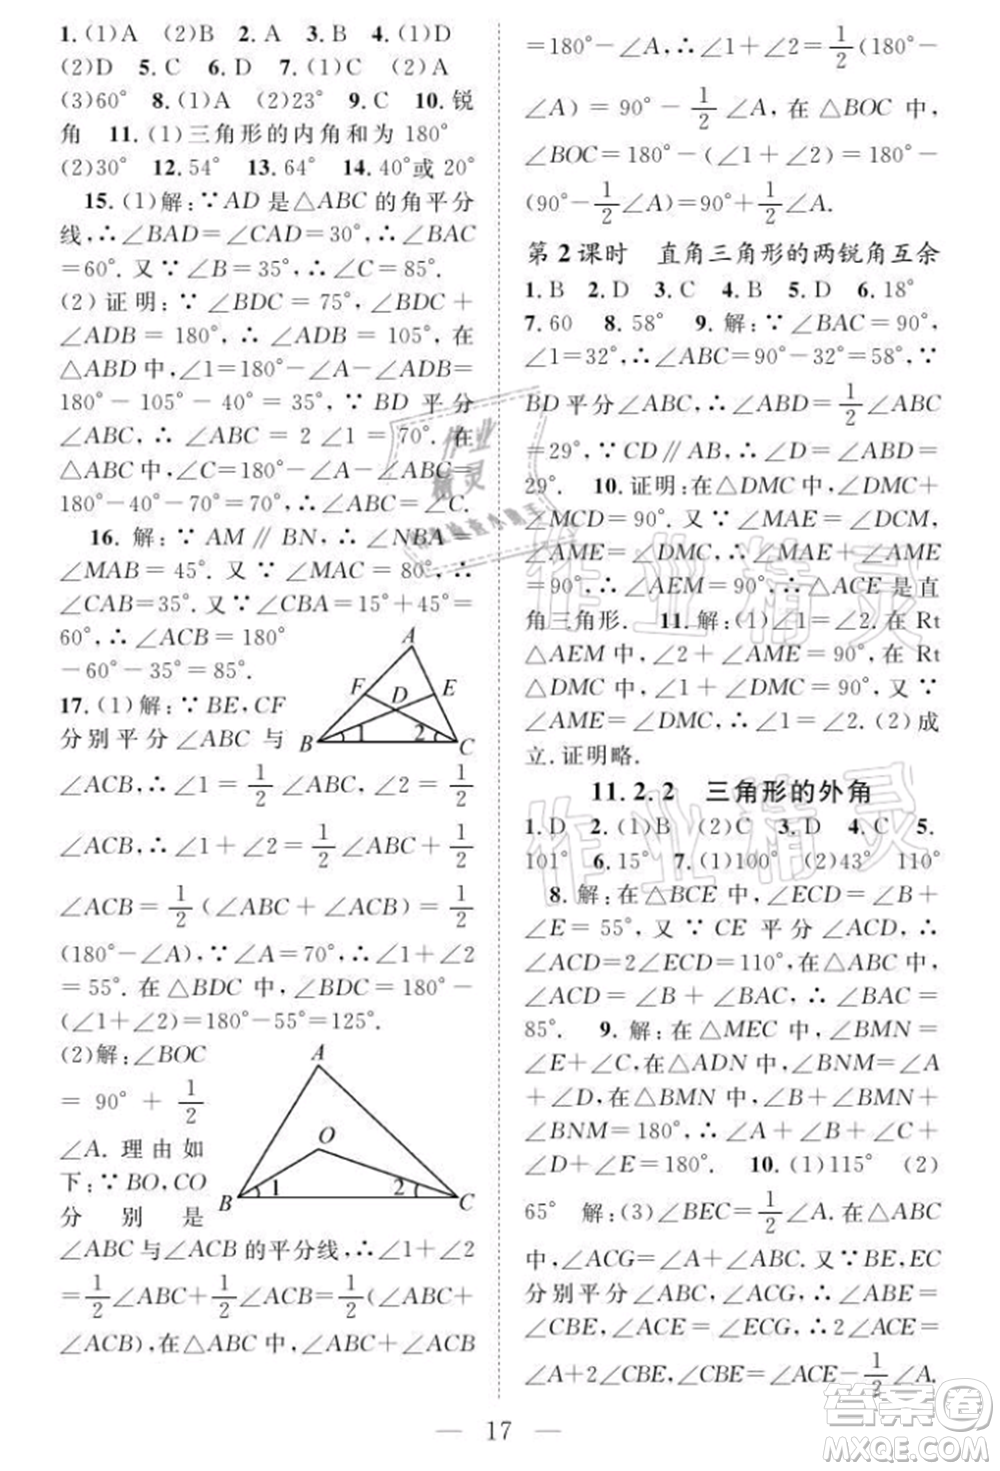 1.(1)A (2)B 2.A 3.B 4.(1)D
(2)D 5.C 6.D 7.(1)C (2)A
(3)60° 8.(1)A (2)23° 9.C 10.锐
角 11.(1)三角形的内角和为 180°
(2)30° 12.54° 13.64° 14.40°或 20°
15.(1)解:∵AD 是△ABC 的角平分
线,∴∠BAD=∠CAD=30°,∴∠BAC
=60°.又∵∠B=35°,∴∠C=85°.
(2)证明:∵∠BDC=75°,∠BDC+
∠ADB=180°,∴∠ADB=105°,在
△ABD 中,∠1=180°-∠A-∠ADB=
180°-105°-40°=35°,∵BD 平分
∠ABC,∴∠ABC=2∠1=70°.在
△ABC 中,∠C=180°-∠A-∠ABC=
180°-40°-70°=70°,∴∠ABC=∠C.
16.解:∵AM∥BN,∴∠NBA=
∠MAB=45°.又∵∠MAC=80°,∴
∠CAB=35°.又∵∠CBA=15°+45°=
60°,∴∠ACB=180°
-60°-35°=85°.
A
F D E
B 1 2 C
17.(1)解:∵BE,CF
分别平分∠ABC 与
∠ACB,∴∠1=1/2∠ABC,∠2=1/2
∠ACB,∴∠1+∠2=1/2∠ABC+1/2
∠ACB=1/2(∠ABC+∠ACB)=1/2
(180°-∠A),∵∠A=70°,∴∠1+∠2
=55°.在△BDC 中,∠BDC=180°-
(∠1+∠2)=180°-55°=125°.
(2)解:∠BOC
=90°+1/2
∠A.理由如
下:∵BO,CO
分别是
A
O
B 1 2 C
∠ABC 与∠ACB 的平分线,∴∠1+∠2
=1/2∠ABC+1/2∠ACB=1/2(∠ABC+
∠ACB),在△ABC 中,∠ABC+∠ACB
=180°-∠A,∴∠1+∠2=1/2(180°-
∠A)=90°-1/2∠A,在△BOC 中,
∠BOC=180°-(∠1+∠2)=180°-
(90°-1/2∠A)=90°+1/2∠A.
第 2 课时 直角三角形的两锐角互余
1.B 2.D 3.C 4.B 5.D 6.18°
7.60 8.58° 9.解:∵∠BAC=90°,
∠1=32°,∴∠ABC=90°-32°=58°,∵
BD 平分∠ABC,∴∠ABD=1/2∠ABC
=29°,∵CD∥AB,∴∠D=∠ABD=
29°. 10.证明:在△DMC 中,∠DMC+
∠MCD=90°.又∵∠MAE=∠DCM,
∠AME=∠DMC,∴∠MAE+∠AME
=90°,∴∠AEM=90°,∴△ACE 是直
角三角形. 11.解:(1)∠1=∠2.在 Rt
△AEM 中,∠2+∠AME=90°,在 Rt
△DMC 中,∠1+∠DMC=90°,又∵
∠AME=∠DMC,∴∠1=∠2.(2)成
立.证明略.
11.2.2 三角形的外角
1.D 2.(1)B (2)C 3.D 4.C 5.
101° 6.15° 7.(1)100° (2)43° 110°
8.解:在△BCE 中,∠ECD=∠B+
∠E=55°,又∵CE 平分∠ACD,∴
∠ACD=2∠ECD=110°,在△ABC 中,
∠ACD=∠B+∠BAC,∴∠BAC=
85°. 9.解:在△MEC 中,∠BMN=
∠E+∠C,在△ADN 中,∠BNM=∠A
+∠D,∵在△BMN 中,∠B+∠BMN+
∠BNM=180°,∴∠A+∠B+∠C+
∠D+∠E=180°. 10.(1)115° (2)
65° 解:(3)∠BEC=1/2∠A.在△ABC
中,∠ACG=∠A+∠ABC.又∵BE,EC
分别平分∠ABC,∠ACG,∴∠ABE=
∠CBE,∠ACE=∠ECG,∴2∠ACE=
∠A+2∠CBE,∴∠CBE=∠ACE-1/2∠A.
17
作业精灵
作业精灵
作业精灵
答案圈
MXQE.COM